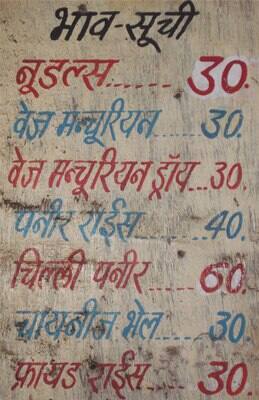 भाव-सूची
नूडल्स...... 30.
वेज मन्चूरियन..... 30.
वेज मन्चूरियन ड्रॉय...30.
पनीर राईस......40.
चिल्ली पनीर.....60.
चायनीज भेल.....30.
फ्रायड राईस....30.